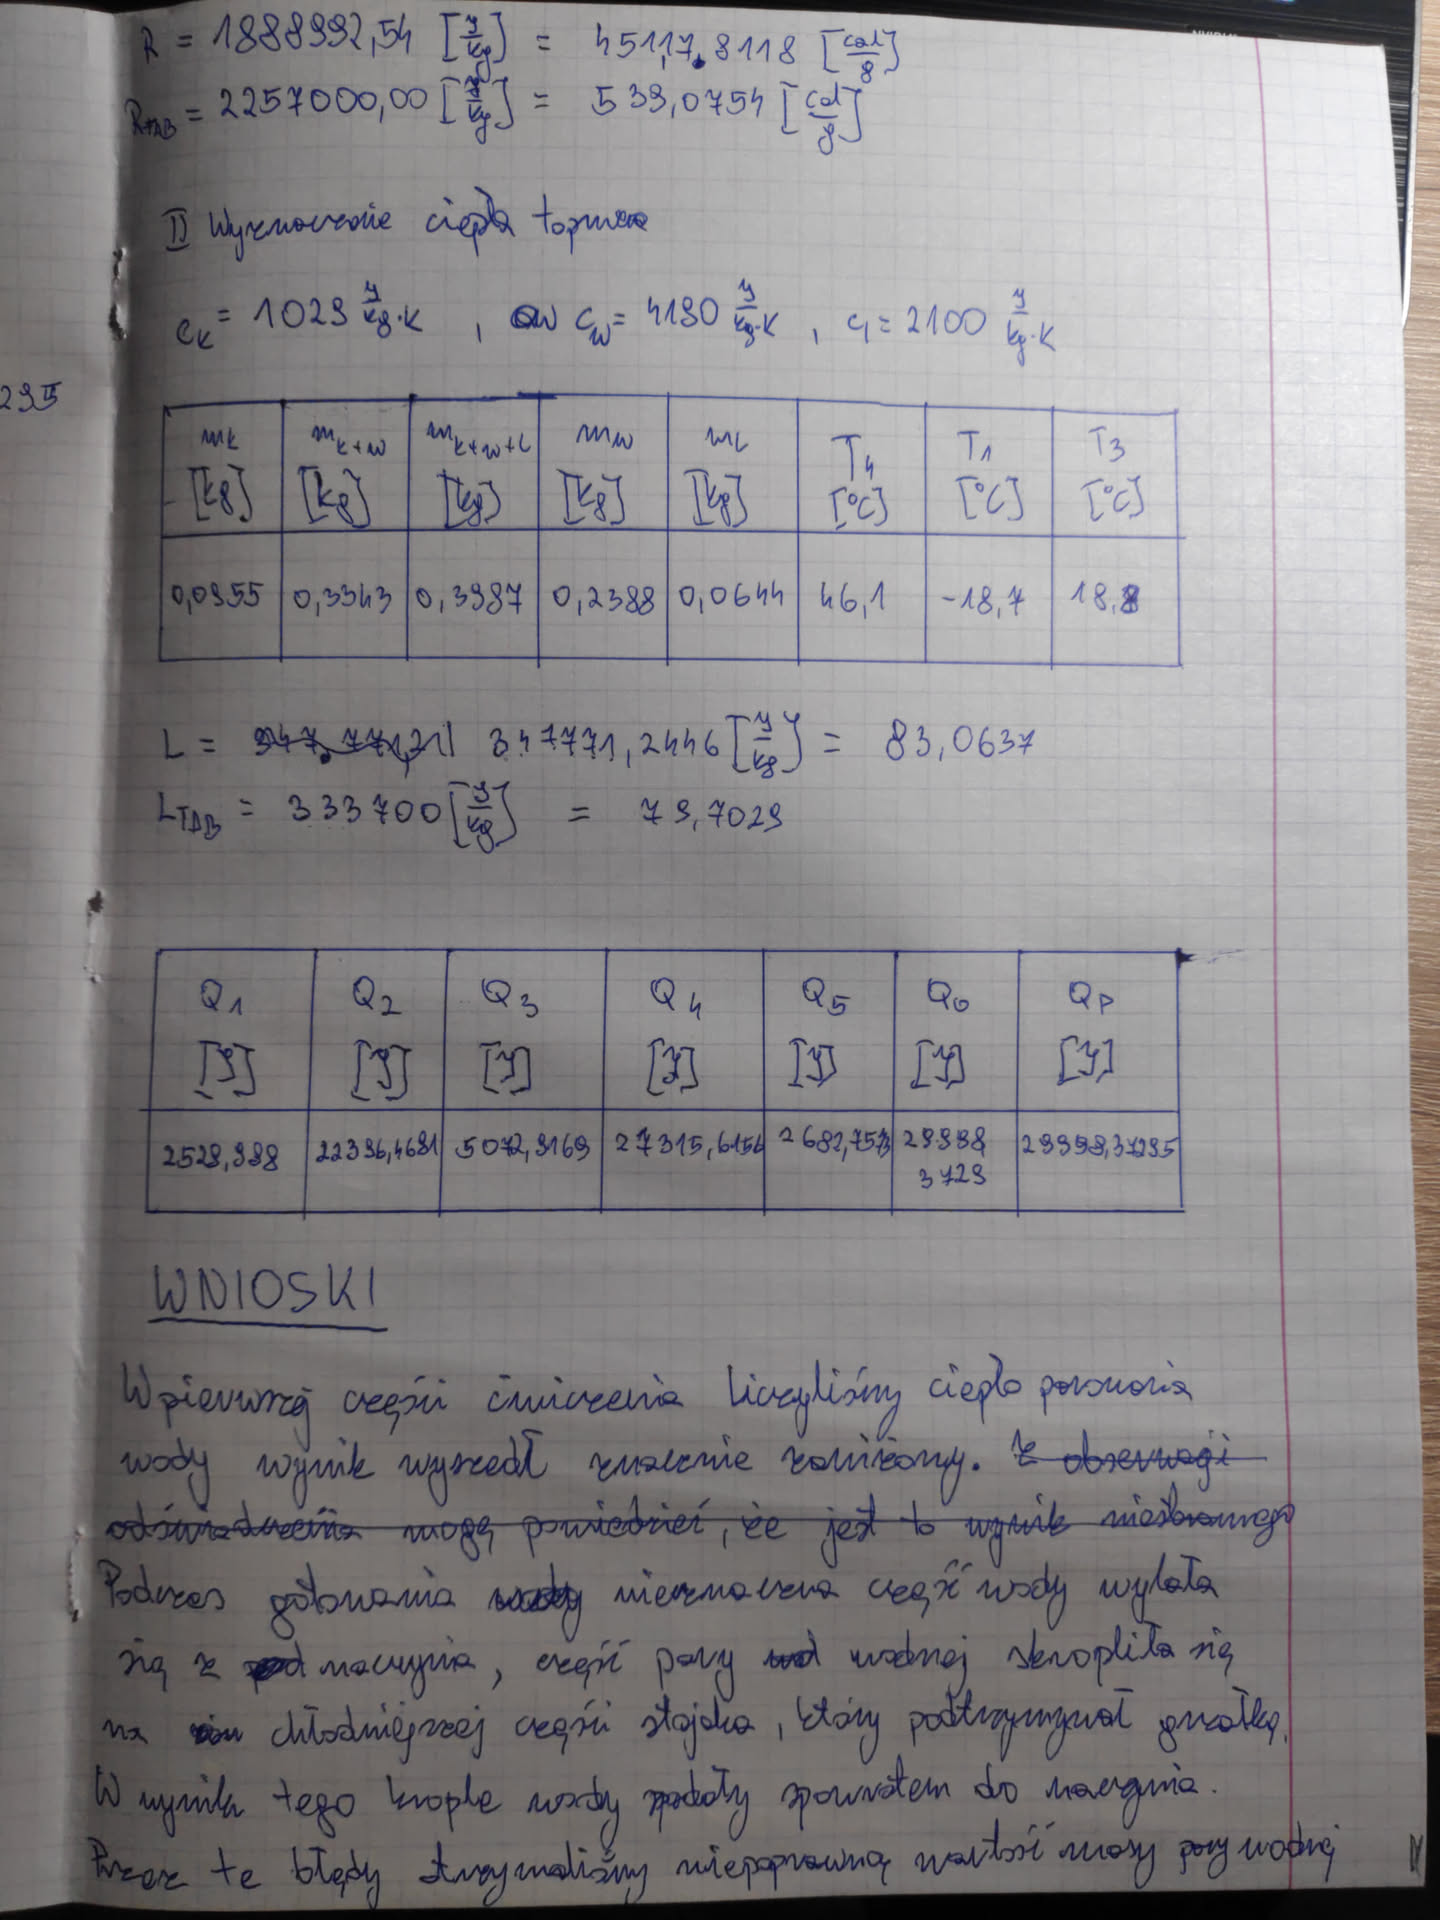 R = 1888992,54 [J/kg] = 45117,8118 [cal/g]
R_TAB = 2257000,00 [J/kg] = 539,0754 [cal/g]
II Wyznaczenie ciepła topnienia
c_K = 1029 J/kg·K , c_w = 4190 J/kg·K , c_l = 2100 J/kg·K
295
m_K [kg] m_K+W [kg] m_K+W+L [kg] m_W [kg] m_L [kg] T_4 [°C] T_1 [°C] T_3 [°C]
0,0955 0,3343 0,3987 0,2388 0,0644 46,1 -18,7 18,8
L = 347771,2446 [J/kg] = 83,0637
L_TAB = 333700 [J/kg] = 79,7029
Q_1 [J] Q_2 [J] Q_3 [J] Q_4 [J] Q_5 [J] Q_o [J] Q_p [J]
2529,998 22396,4681 5072,9169 27315,6156 2682,757 29998,3729 29998,37295
WNIOSKI
W pierwszej części ćwiczenia liczyliśmy ciepło parowania
wody wynik wyszedł znacznie zaniżony. z obserwacji
odświadczenia mogę powiedzieć, że jest to wynik niestarannego
Podczas gotowania wody nieznaczna część wody wylała
się z naczynia, część pary wodnej skropliła się
na chłodniejszej części stojaka, który podtrzymywał grzałkę.
W wyniku tego krople wody spadały spowrotem do naczynia.
Przez te błędy otrzymaliśmy niepoprawną wartość masy pary wodnej